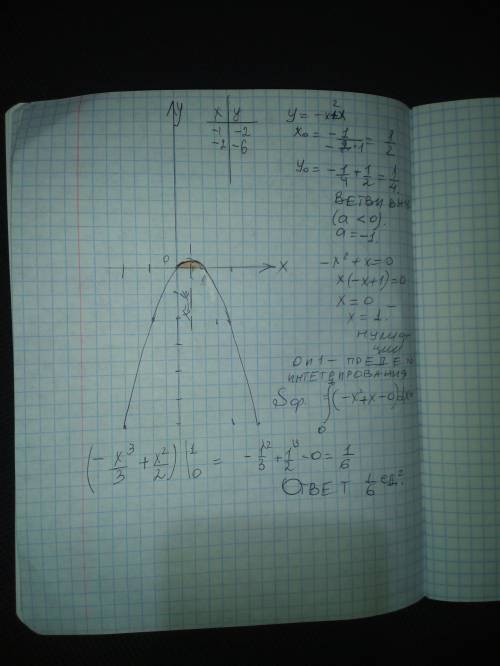 y
x y
-1 -2
-2 -6
y = -x²+x
x₀ = -1/(-2·1) = 1/2
y₀ = -1/4 + 1/2 = 1/4.
ВЕТВИ ВНИ
(a < 0).
a = -1.
0
x
1
-x² + x = 0
x(-x+1) = 0
x = 0
x = 1.
0 и 1 - ПРЕДЕЛ
ИНТЕГРИРОВАНИЯ
Sф = ∫₀¹ (-x²+x-0)dx=
(-x³/3 + x²/2) |₀¹ = -1³/3 + 1²/2 - 0 = 1/6
ОТВЕТ 1/6 ед².